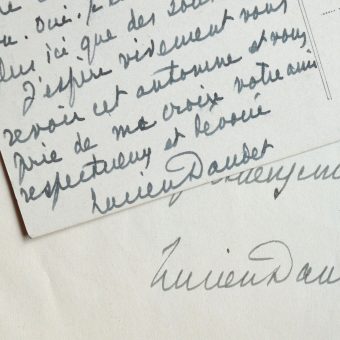 u. oui. je
plus ici que des sou
J'espère vivement vous
revoir cet automne et vous
prie de me croix votre ami
respectueux et dévoué
Lucien Daudet
Lucien Dau